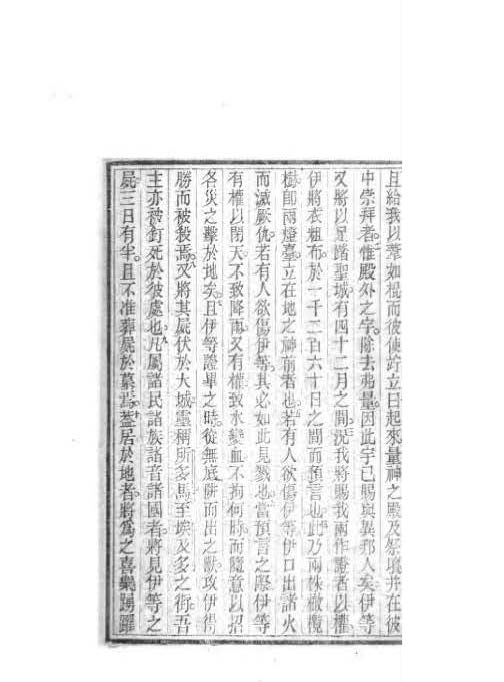 且給我以葦如棍而彼使竚立曰起來量神之殿及祭壇并在彼
中崇拜者惟殿外之宇除去弗量因此宇已賜與異邦人矣伊等
又將以足踏聖城有四十二月之間況我將賜我兩作證者以權
伊將衣粗布於一千二百六十日之間而預言也此乃兩株橄欖
樹卽兩燈臺立在地之神前者也若有人欲傷伊等伊口出諸火
而滅厥仇若有人欲傷伊等其必如此見戮也當預言之際伊等
有權以閉天不致降雨又有權致水變血不拘何時而隨意以招
各災之擊於地矣且伊等證畢之時從無底阱而出之獸攻伊得
勝而被殺焉又將其屍伏於大城靈稱所多馬至埃及多之街吾
主亦被釘死於彼處也凡屬諸民諸族諸音諸國者將見伊等之
屍三日有半且不准葬屍於墓焉蓋居於地者將爲之喜樂踢躍